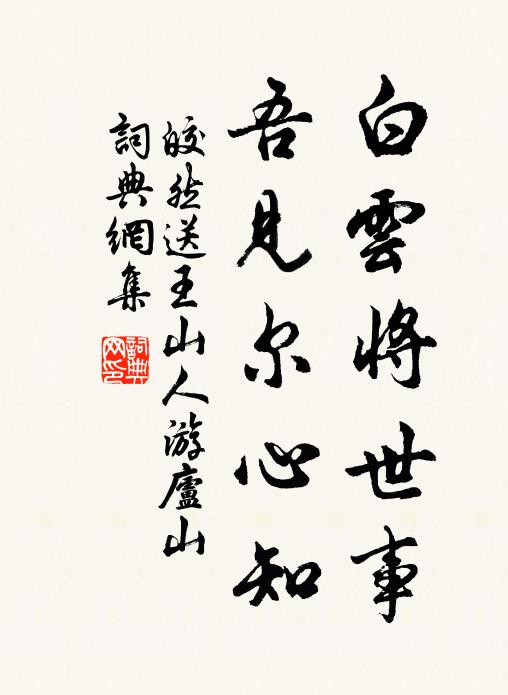 白雲將世事
吾見尔心知
皎然送王山人游廬山
詞典網集
詞典網印